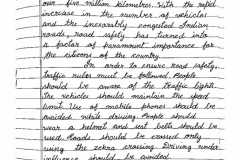 our five million kilometres. With the rapid
increase in the number of vehicles
and the inexorably congested Indian
roads, road safety has turned into
a factor of paramount importance for
the citizens of the country.
In order to ensure road safety,
traffic rules must be followed. People
should be aware of the traffic lights.
The vehicles should maintain the speed
limit. Use of mobile phones should be
avoided while driving. People should
wear a helmet and seat belts should be
used. Roads should be crossed only
using the zebra crossing. Driving under
influence should be avoided.